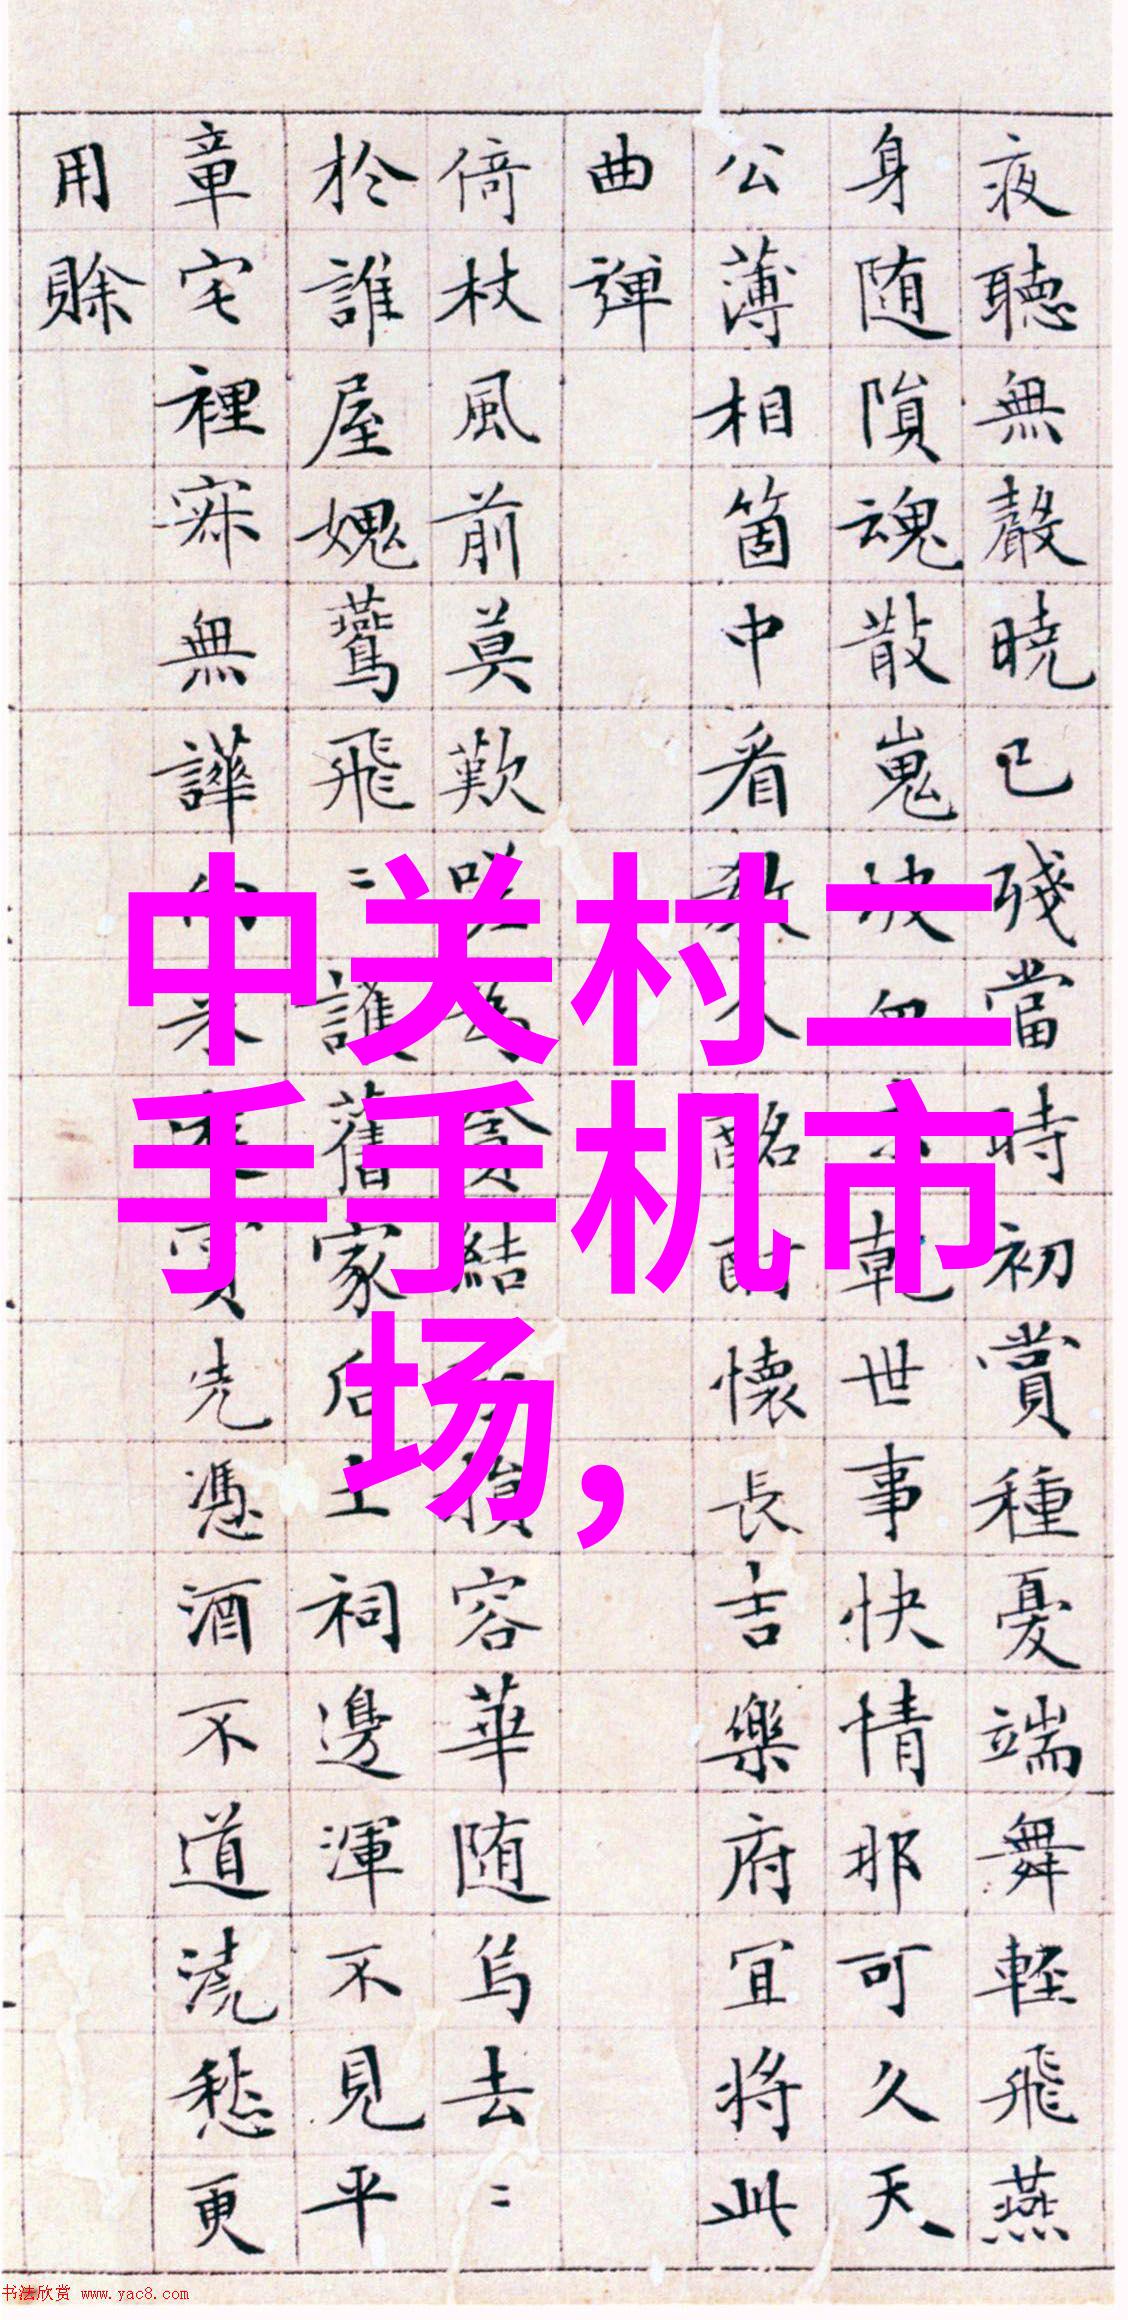 夜聽無聲曉已殘當時初賞種憂端舞輕飛燕
身随隕魂散嵬世事快情那可久天
公薄相箇中看懷長吉樂府宜將此
曲彈
倚杖風前莫歎結損容華随烏去〻
於誰屋媿鸎飛〻護舊家后土祠邊渾不見平
章宅裡寂無譁先憑酒不道澆愁更
用賒
中关村二
手手机市
场，
书法欣赏 www.yac8.com